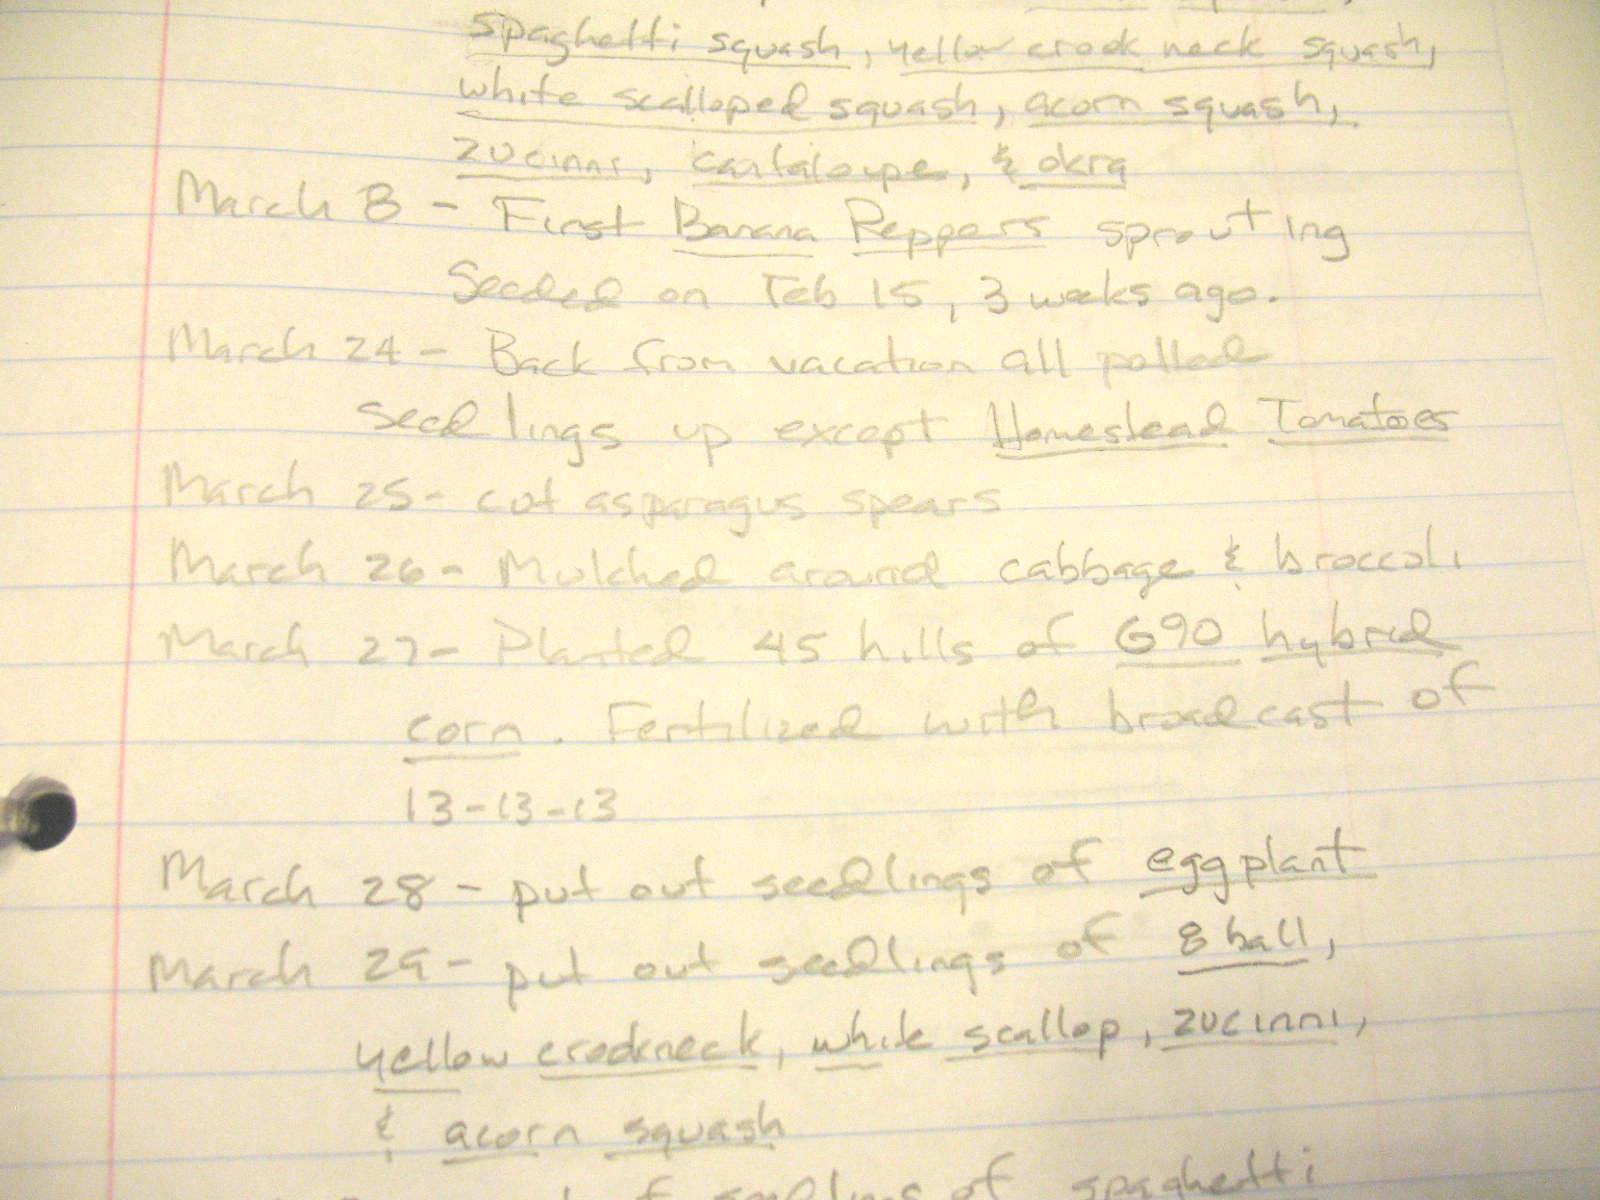 spaghetti squash, yellow crook neck squash,
white scalloped squash, acorn squash,
zucinni, cantaloupe, & okra
March 8 - First Banana Peppers sprouting
Seeded on Feb 15, 3 weeks ago.
March 24 - Back from vacation all potted
seedlings up except Homestead Tomatoes
March 25 - cut asparagus spears
March 26 - Mulched around cabbage & broccoli
March 27 - Planted 45 hills of G90 hybrid
corn. Fertilized with broadcast of
13-13-13
March 28 - put out seedlings of eggplant
March 29 - put out seedlings of 8 ball,
yellow crookneck, white scallop, zucinni,
& acorn squash
of spaghetti